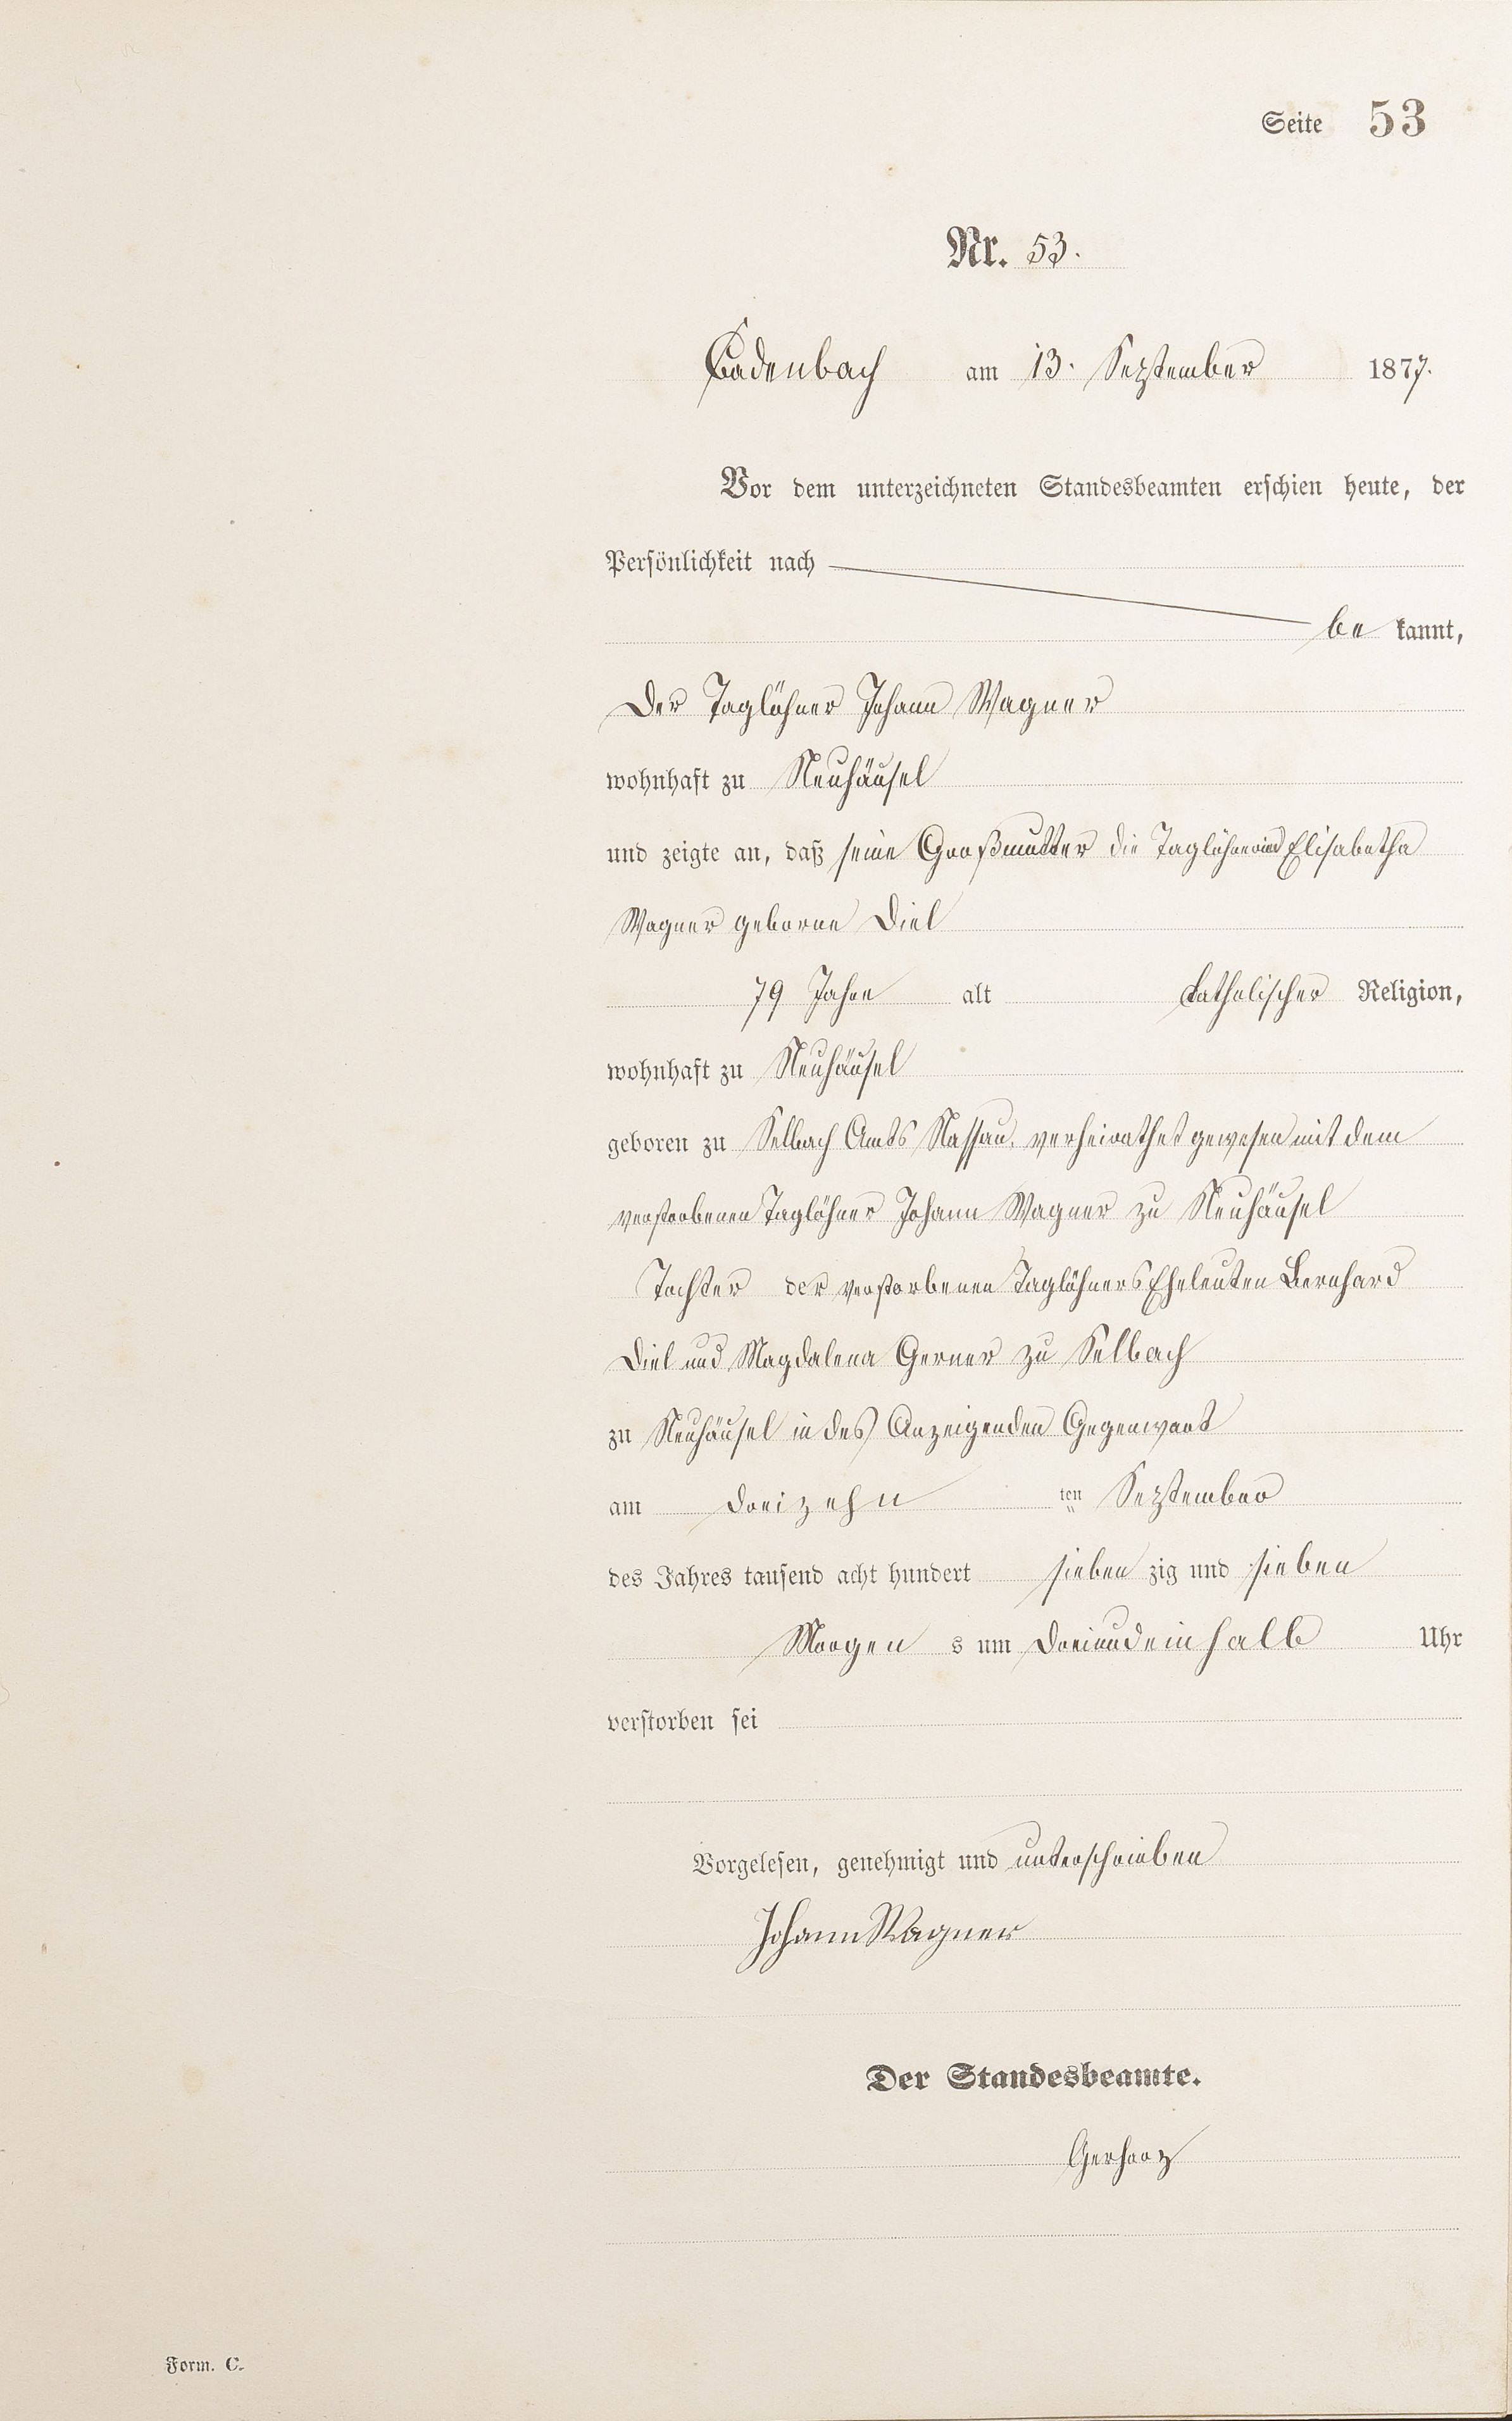 Seite 53
Nr. 53.
Cadenbach am 13. September 1877.
Vor dem unterzeichneten Standesbeamten erschien heute, der
Persönlichkeit nach
be kannt,
Der Taglöhner Johann Wagner
wohnhaft zu Neuhäusel
und zeigte an, daß seine Großmutter die Taglöhnerin Elisabetha
Wagner geborne Diel
79 Jahre alt katholischer Religion,
wohnhaft zu Neuhäusel
geboren zu Selbach Amts Nassau, verheirathet gewesen mit dem
verstorbenen Taglöhner Johann Wagner zu Neuhäusel
Tochter der verstorbenen Taglöhners Eheleuten Bernhard
Diel und Magdalena Gerner zu Selbach
zu Neuhäusel in des Anzeigenden Gegenwart
am dreizehn ten September
des Jahres tausend acht hundert sieben zig und sieben
Morgen s um dreiundeinhalb Uhr
verstorben sei
Vorgelesen, genehmigt und unterschrieben
Johann Wagner
Der Standesbeamte.
Gerharz
Form. C.